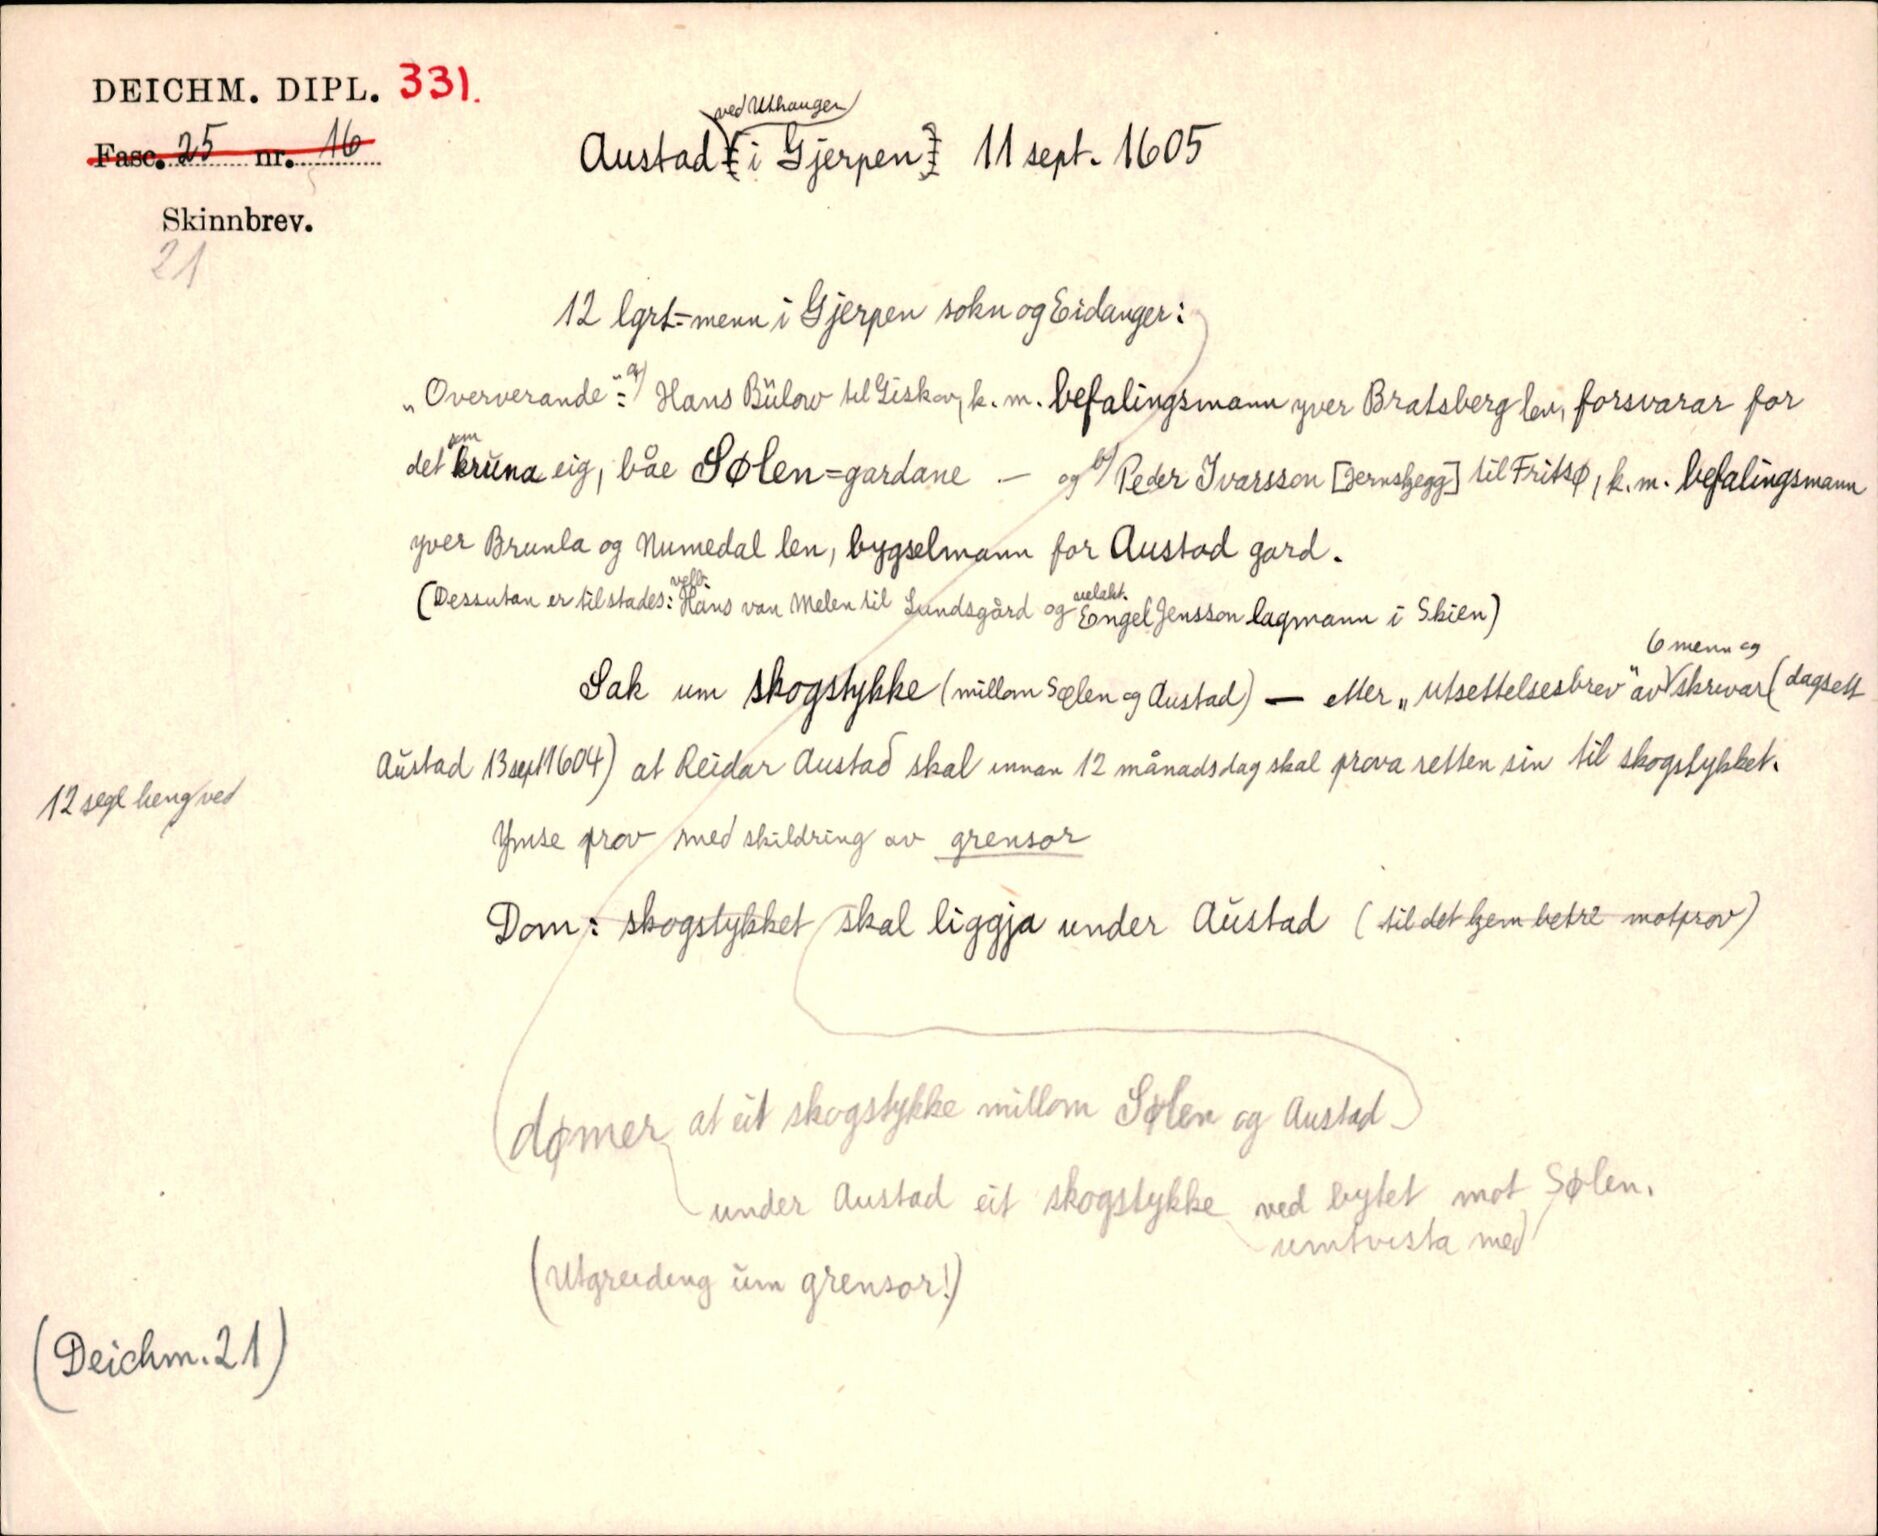 DEICHM. DIPL. 331.
Fasc. 25 nr. 16
Skinnbrev.
21
ved Uthaugen
Austad [i Gjerpen] 11 sept. 1605
12 lgrt=menn i Gjerpen sokn og Eidanger:
„Oververande": a) Hans Bülow til Giskov, k. m. befalingsmann yver Bratsberg len, forsvarar for
det som kruna eig, båe Sølen=gardane — og b) Peder Ivarsson [Jernskjegg] til Fritsø, k. m. befalingsmann
yver Brunla og Numedal len, bygselmann for Austad gard.
(Dessutan er tilstades: velb. Hans van Melen til Lundsgård og velakt. Engel Jensson lagmann i Skien)
Sak um skogstykke (millom Sølen og Austad) — etter „utsettelsesbrev" av 6 menn og skrivar (dagsett
Austad 13 sept 1604) at Reidar Austad skal innan 12 månadsdag skal prova retten sin til skogstykket.
12 segl heng ved
Ymse prov med skildring av grensor
Dom: skogstykket skal liggja under Austad (til det kjem betre motprov)
dømer at eit skogstykke millom Sølen og Austad
under Austad eit skogstykke ved bytet mot Sølen.
umtvista med
(Utgreiding um grensor!)
(Deichm. 21)